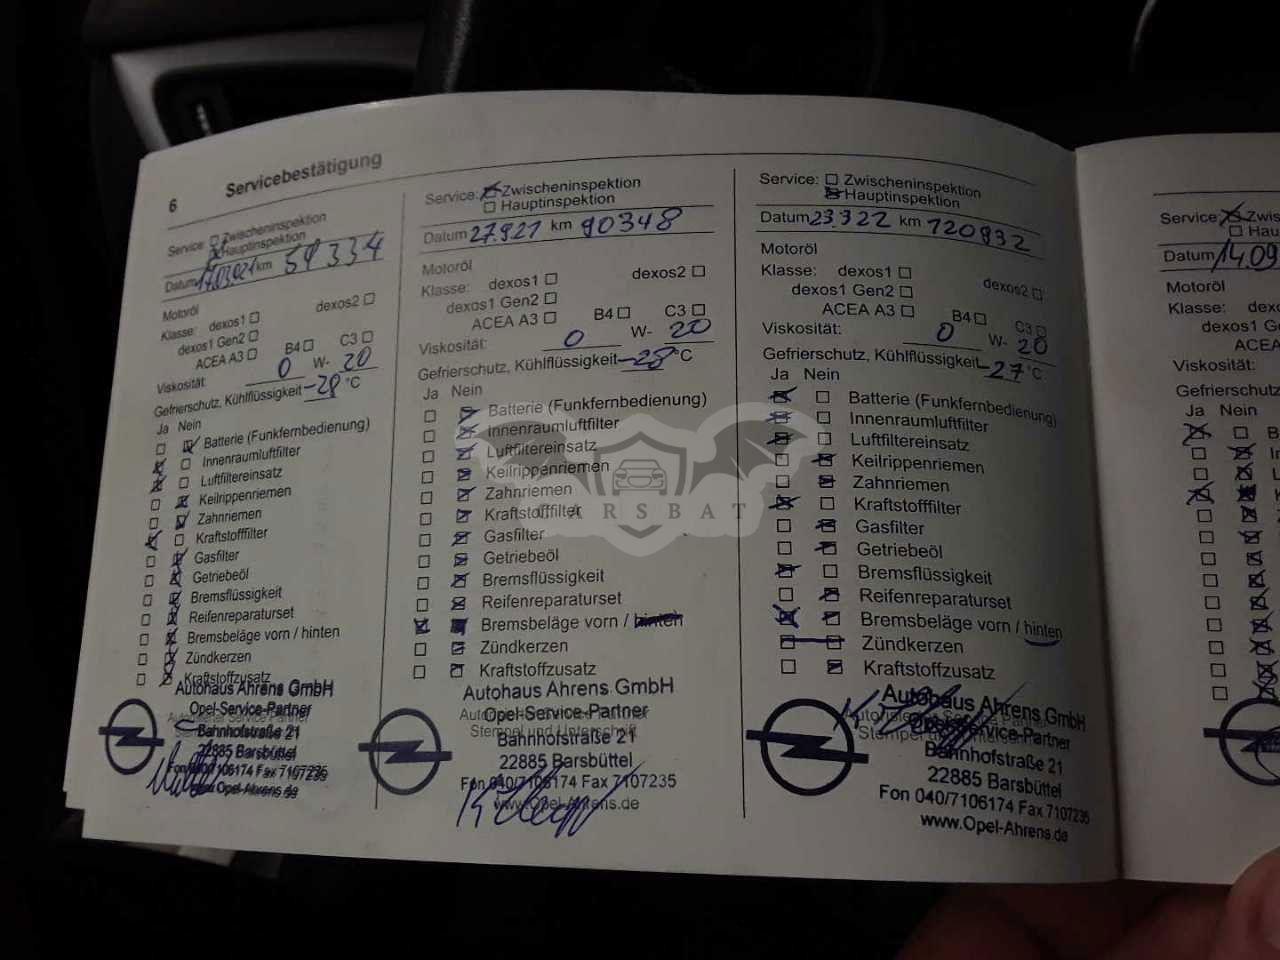 6
Servicebestätigung
Service: Zwischeninspektion
Hauptinspektion
Datum 17.03.021 km 59334
Motoröl
Klasse: dexos1 dexos2
dexos1 Gen2
ACEA A3 B4 C3
Viskosität: 0 W- 20
Gefrierschutz, Kühlflüssigkeit -28 °C
Ja Nein
Batterie (Funkfernbedienung)
Innenraumluftfilter
Luftfiltereinsatz
Keilrippenriemen
Zahnriemen
Kraftstofffilter
Gasfilter
Getriebeöl
Bremsflüssigkeit
Reifenreparaturset
Bremsbeläge vorn / hinten
Zündkerzen
Kraftstoffzusatz
Autohaus Ahrens GmbH
Opel-Service-Partner
Bahnhofstraße 21
22885 Barsbüttel
Fon 040/7106174 Fax 7107235
www.Opel-Ahrens.de
Service: Zwischeninspektion
Hauptinspektion
Datum 27.921 km 90348
Motoröl
Klasse: dexos1 dexos2
dexos1 Gen2
ACEA A3 B4 C3
Viskosität: 0 W- 20
Gefrierschutz, Kühlflüssigkeit -28 °C
Ja Nein
Batterie (Funkfernbedienung)
Innenraumluftfilter
Luftfiltereinsatz
Keilrippenriemen
Zahnriemen
Kraftstofffilter
Gasfilter
Getriebeöl
Bremsflüssigkeit
Reifenreparaturset
Bremsbeläge vorn / hinten
Zündkerzen
Kraftstoffzusatz
Autohaus Ahrens GmbH
Opel-Service-Partner
Stempel und Unterschrift
Bahnhofstraße 21
22885 Barsbüttel
Fon 040/7106174 Fax 7107235
www.Opel-Ahrens.de
Service: Zwischeninspektion
Hauptinspektion
Datum 23.322 km 120932
Motoröl
Klasse: dexos1 dexos2
dexos1 Gen2
ACEA A3 B4 C3
Viskosität: 0 W- 20
Gefrierschutz, Kühlflüssigkeit -27 °C
Ja Nein
Batterie (Funkfernbedienung)
Innenraumluftfilter
Luftfiltereinsatz
Keilrippenriemen
Zahnriemen
Kraftstofffilter
Gasfilter
Getriebeöl
Bremsflüssigkeit
Reifenreparaturset
Bremsbeläge vorn / hinten
Zündkerzen
Kraftstoffzusatz
Autohaus Ahrens GmbH
Opel-Service-Partner
Bahnhofstraße 21
22885 Barsbüttel
Fon 040/7106174 Fax 7107235
www.Opel-Ahrens.de
Service: Zwis
Hau
Datum 14.09
Motoröl
Klasse: dexo
dexos1 G
ACEA
Viskosität:
Gefrierschutz
Ja Nein
B
In
L
K
ARSBAT